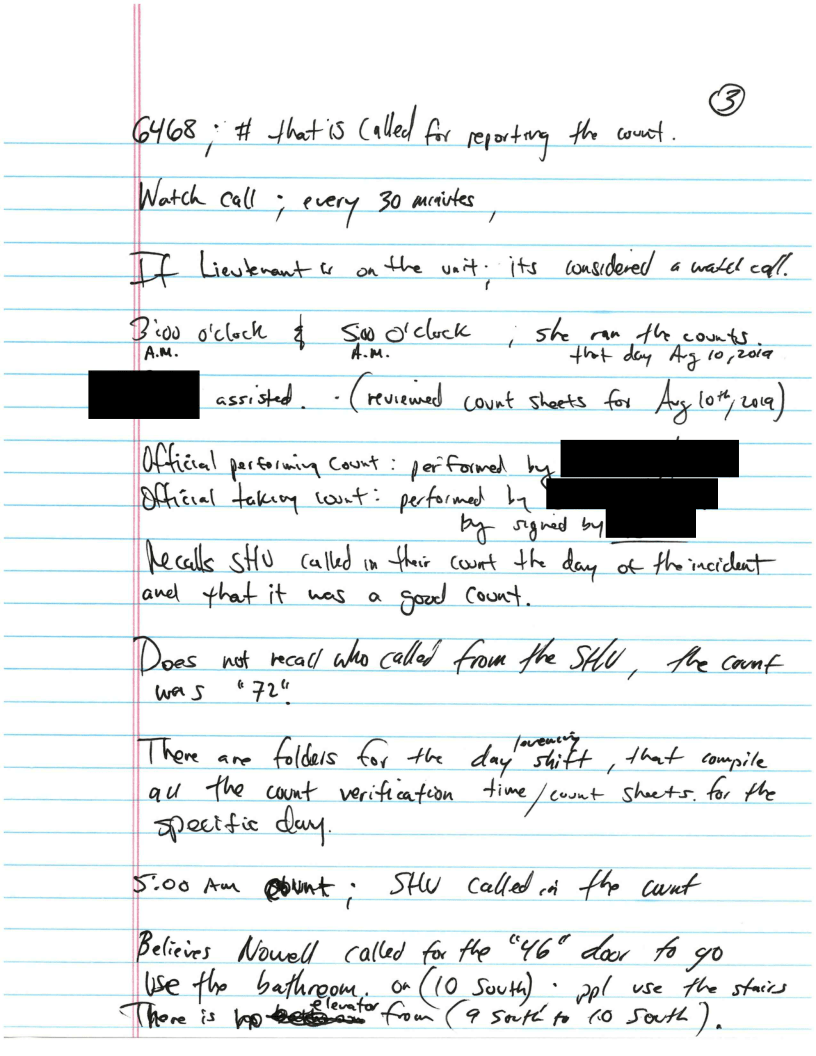 3
6468 ; # that is called for reporting the count.
Watch call ; every 30 minutes,
If Lieutenant is on the unit; its considered a watch call.
3:00 o'clock & 5:00 o'clock ; she ran the counts.
A.M. A.M. that day Aug 10, 2019
assisted. · (reviewed count sheets for Aug 10th, 2019)
Official performing count: performed by
Official taking count: performed by
by signed by
Recalls SHU called in their count the day of the incident
and that it was a good count.
Does not recall who called from the SHU, the count
was "72".
There are folders for the day /evening shift, that compile
all the count verification time/count sheets. for the
specific day.
5:00 Am count ; SHU called in the count
Believes Nowell called for the "46" door to go
use the bathroom. on (10 South) · ppl use the stairs
There is no elevator from (9 South to 10 South).